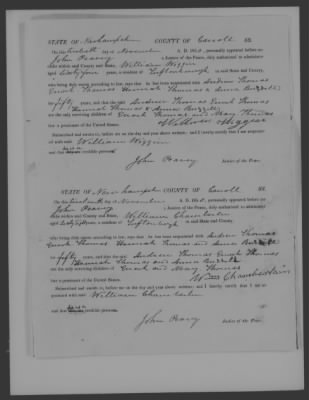 STATE OF New hampshire COUNTY OF Carroll SS.
On this twentieth day of November A. D. 18 , personally appeared before me
John Peavy a Justice of the Peace, duly authorized to administer
within said County and State, William Wiggin
aged Sixty four years, a resident of Tuftonborough in said State and County,
who being duly sworn according to law, says that he has been acquainted with Andrew Thomas
Enoch Thomas Hannah Thomas & Anna Buzzell
for fifty years, and that the said Andrew Thomas Enoch Thomas
Hannah Thomas & Anna Buzzell
are the only surviving children of Enoch Thomas and Mary Thomas
but a pensioner of the United States. William Wiggin
Subscribed and sworn to, before me on the day and year above written; and I hereby certify that I am acquainted
with said William Wiggin
and that credible person
John Peavy Justice of the Peace.
STATE OF New hampshire COUNTY OF Carroll SS.
On this twentieth day of November A. D. 18 , personally appeared before me
John Peavy a Justice of the Peace, duly authorized to administer
within said County and State, William Chamberlin
aged years, a resident of Tuftonboro in said State and County,
who being duly sworn according to law, says that he has been acquainted with Andrew Thomas
Enoch Thomas Hannah Thomas and Anna Buzzell
for fifty years, and that the said Andrew Thomas Enoch Thomas
Hannah Thomas and Anna Buzzell
are the only surviving children of Enoch and Mary Thomas
but a pensioner of the United States. Wm Chamberlain
Subscribed and sworn to, before me on the day and year above written; and I hereby certify that I am acquainted with said William Chamberlin
and that credible person
John Peavy Justice of the Peace.